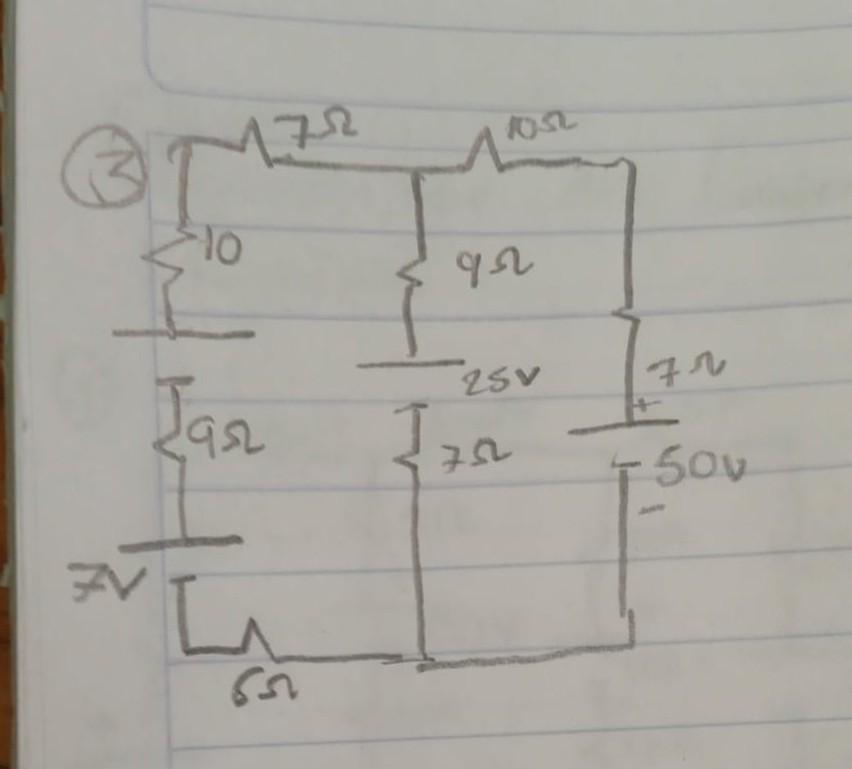 3
7Ω
10Ω
10
9Ω
25V
7Ω
+
9Ω
7Ω
50V
-
7V
6Ω